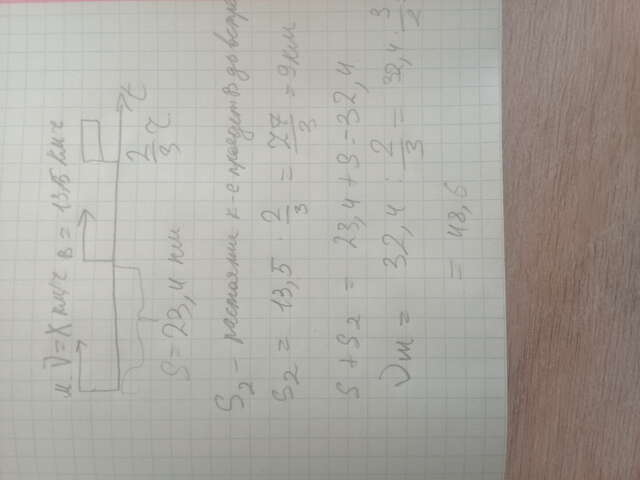 м. V = X км/ч в = 13,5 км ч
t
2/3 ч
S = 23,4 км
S2 - растояние к-е проедет в до встре
S2 = 13,5 · 2/3 = 27/3 = 9 км
S + S2 = 23,4 + 9 = 32,4
Vм = 32,4 : 2/3 = 32,4 · 3/2
= 48,6